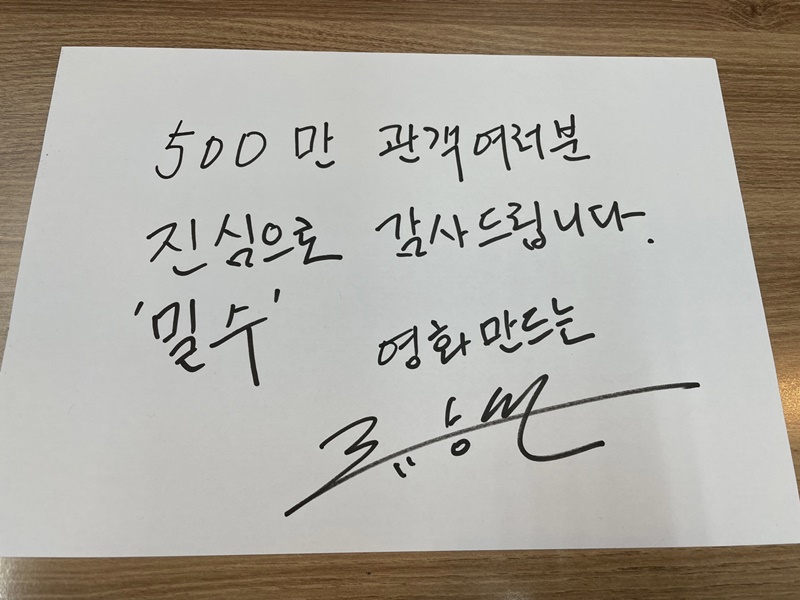 500만 관객여러분
진심으로 감사드립니다.
'밀수' 영화만드는